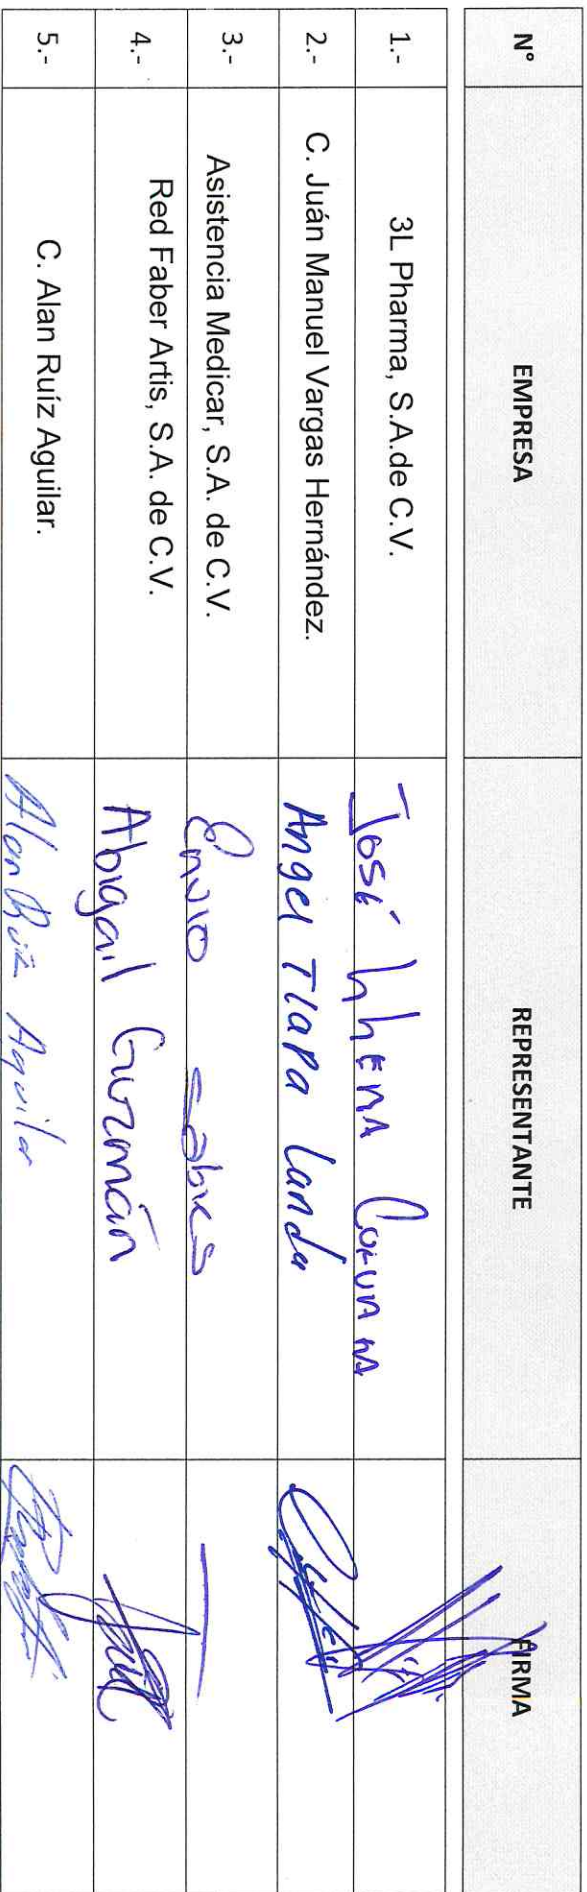 N° EMPRESA REPRESENTANTE FIRMA
1.- 3L Pharma, S.A.de C.V. José
2.- C. Juán Manuel Vargas Hernández. Angel Tlapa Landa
3.- Asistencia Medicar, S.A. de C.V. Envio sobres
4.- Red Faber Artis, S.A. de C.V. Abigail Guzmán
5.- C. Alan Ruíz Aguilar. Alan Ruiz Aguilar